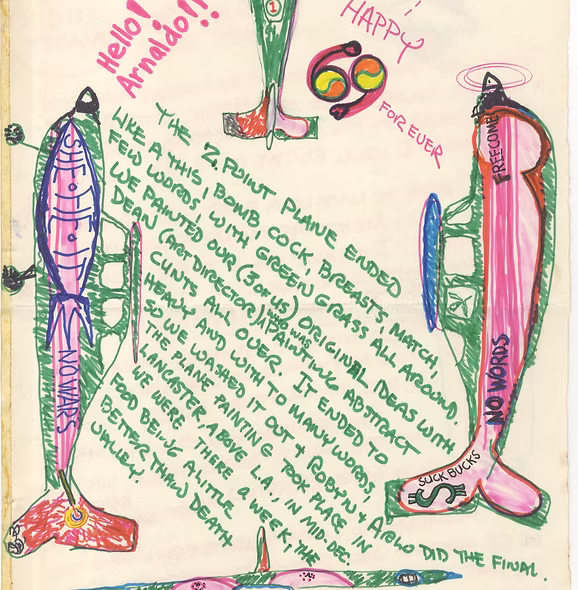 Hello!
Arnaldo!!
1
HAPPY
69
FOREVER
THE 2. POINT PLAINE ENDED
LIKE A THIS, BOMB, COCK, BREASTS, MATCH,
FEW WORDS, WITH GREEN GRASS ALL AROUND.
WE PAINTED OUR (3 OF US) ORIGINAL IDEAS WITH
DEAN (ART DIRECTOR) WHO WAS PAINTING ABSTRACT
CUNTS ALL OVER. IT ENDED TO
HEAVY AND WITH TO MANY WORDS,
SO WE WASHED IT OUT & ROBYN & AIRLO DID THE FINAL.
THE PLANE PAINTING TOOK PLACE IN
LANCASTER, ABOVE L.A., IN MID-DEC.
WE WERE THERE A WEEK, THE
FOD BEING A LITTLE
BETTER THAN DEATH
VALLEY.
NO WARS
NO WORDS
SUCK BUCKS
$